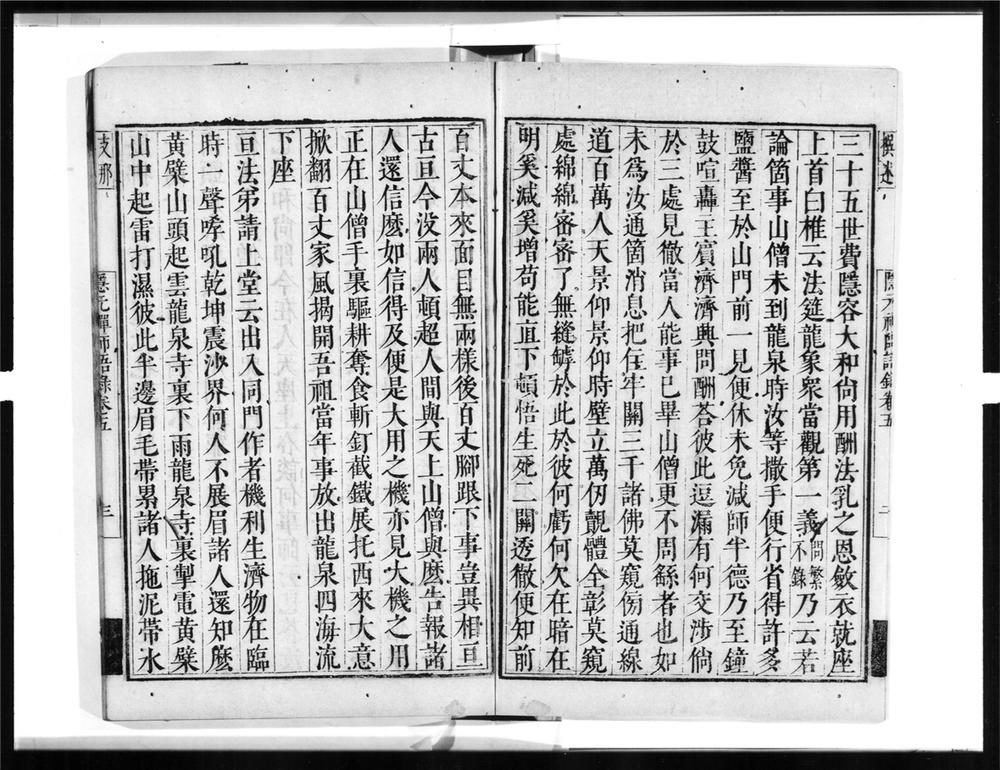 三十五世費隱容大和尚用酬法乳之恩斂衣就座
上首白椎云法筵龍象眾當觀第一義問繁不錄乃云若
論箇事山僧未到龍泉時汝等撒手便行省得許多
鹽醬至於山門前一見便休未免減師半德乃至鐘
鼓喧轟主賓濟濟興問酬荅彼此逗漏有何交涉倘
於三處見徹當人能事已畢山僧更不周繇者也如
未為汝通箇消息把住牢關三千諸佛莫窺傍通線
道百萬人天景仰景仰時壁立萬仞覿體全彰莫窺
處綿綿審審了無縫罅於此於彼何虧何欠在暗在
明奚減奚增苟能直下頓悟生死二關透徹便知前
百丈本來面目無兩樣後百丈腳跟下事豈異相亘
古亘今沒兩人頓超人間與天上山僧與麼告報諸
人還信麼如信得及便是大用之機亦見大機之用
正在山僧手裏驅耕奪食斬釘截鐵展托西來大意
掀翻百丈家風揭開吾祖當年事放出龍泉四海流
下座
亘法弟請上堂云出入同門作者機利生濟物在臨
時一聲哮吼乾坤震沙界何人不展眉諸人還知麼
黃檗山頭起雲龍泉寺裏下雨龍泉寺裏掣電黃檗
山中起雷打濕彼此半邊眉毛帶累諸人拖泥帶水
隱元禪師語錄卷五
三
支那
撰述
隱元禪師語錄卷五